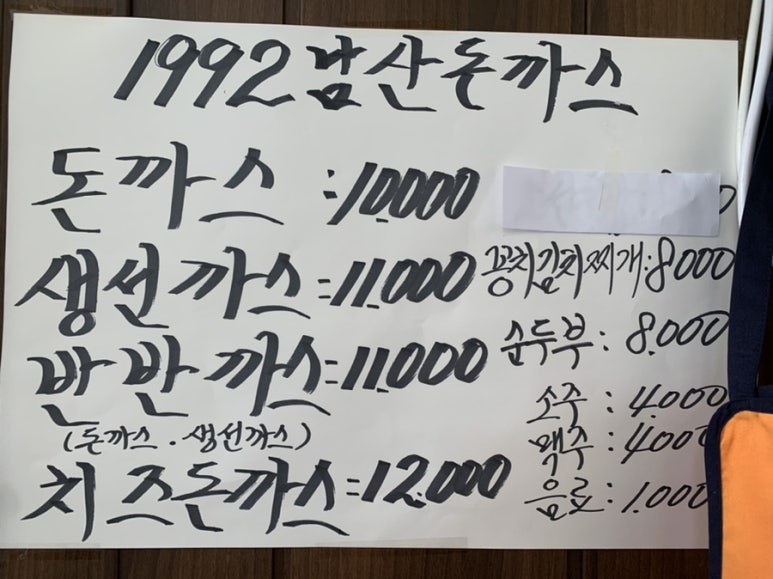 1992 남산돈까스
돈까스 : 10.000
생선까스 = 11.000
반반까스 = 11.000
(돈까스 . 생선까스)
치즈돈까스 = 12.000
꽁치김치찌개 : 8000
순두부 : 8.000
소주 : 4.000
맥주 : 4.000
음료 : 1.000